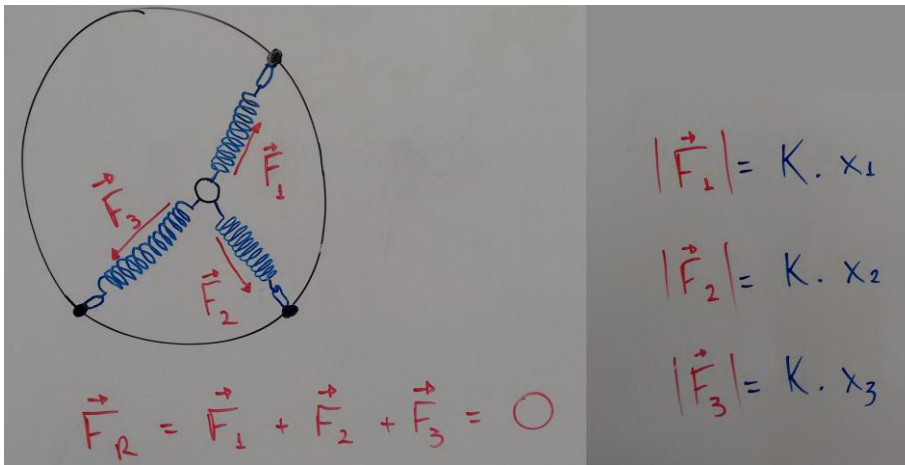 F⃗₁
F⃗₃
F⃗₂
F⃗_R = F⃗₁ + F⃗₂ + F⃗₃ = 0
|F⃗₁| = K . x₁
|F⃗₂| = K . x₂
|F⃗₃| = K . x₃